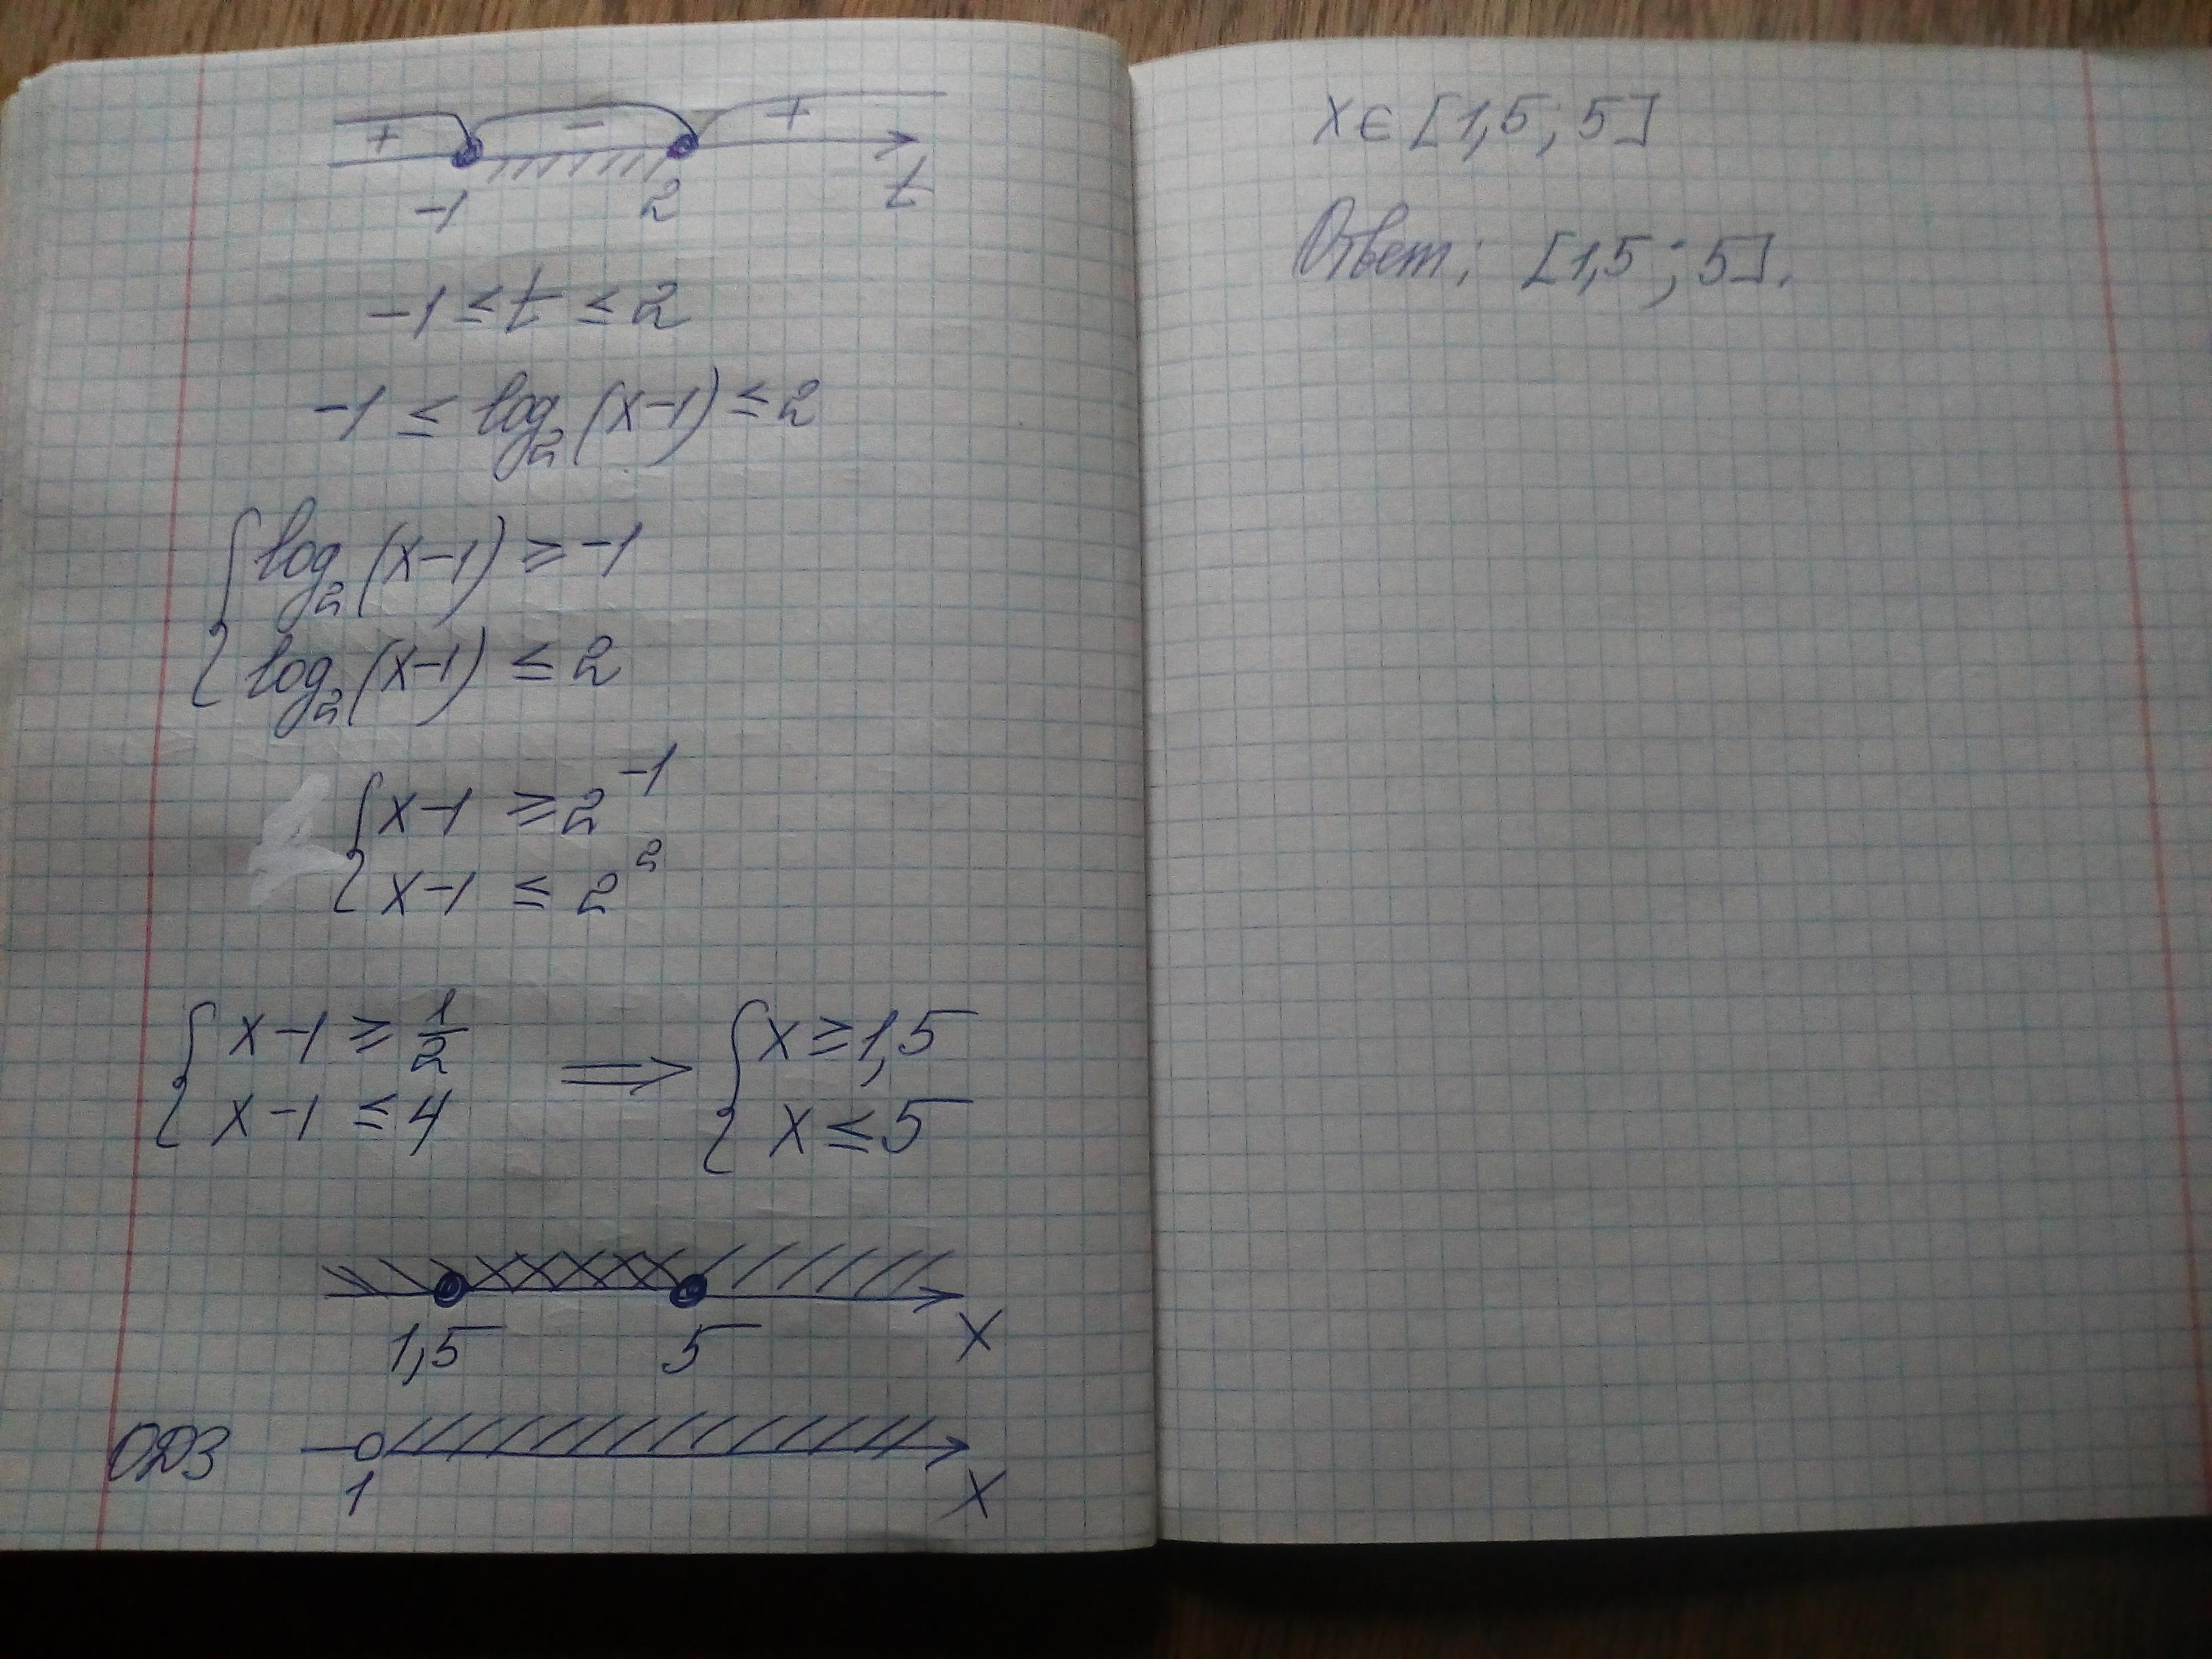 + − +
−1 2 t
−1 ≤ t ≤ 2
−1 ≤ log₂(x−1) ≤ 2
{ log₂(x−1) ≥ −1
log₂(x−1) ≤ 2
{ x−1 ≥ 2⁻¹
x−1 ≤ 2²
{ x−1 ≥ 1/2 ⟹ { x ≥ 1,5
x−1 ≤ 4 x ≤ 5
1,5 5 x
ОДЗ
1 x
x ∈ [1,5; 5]
Ответ: [1,5; 5].